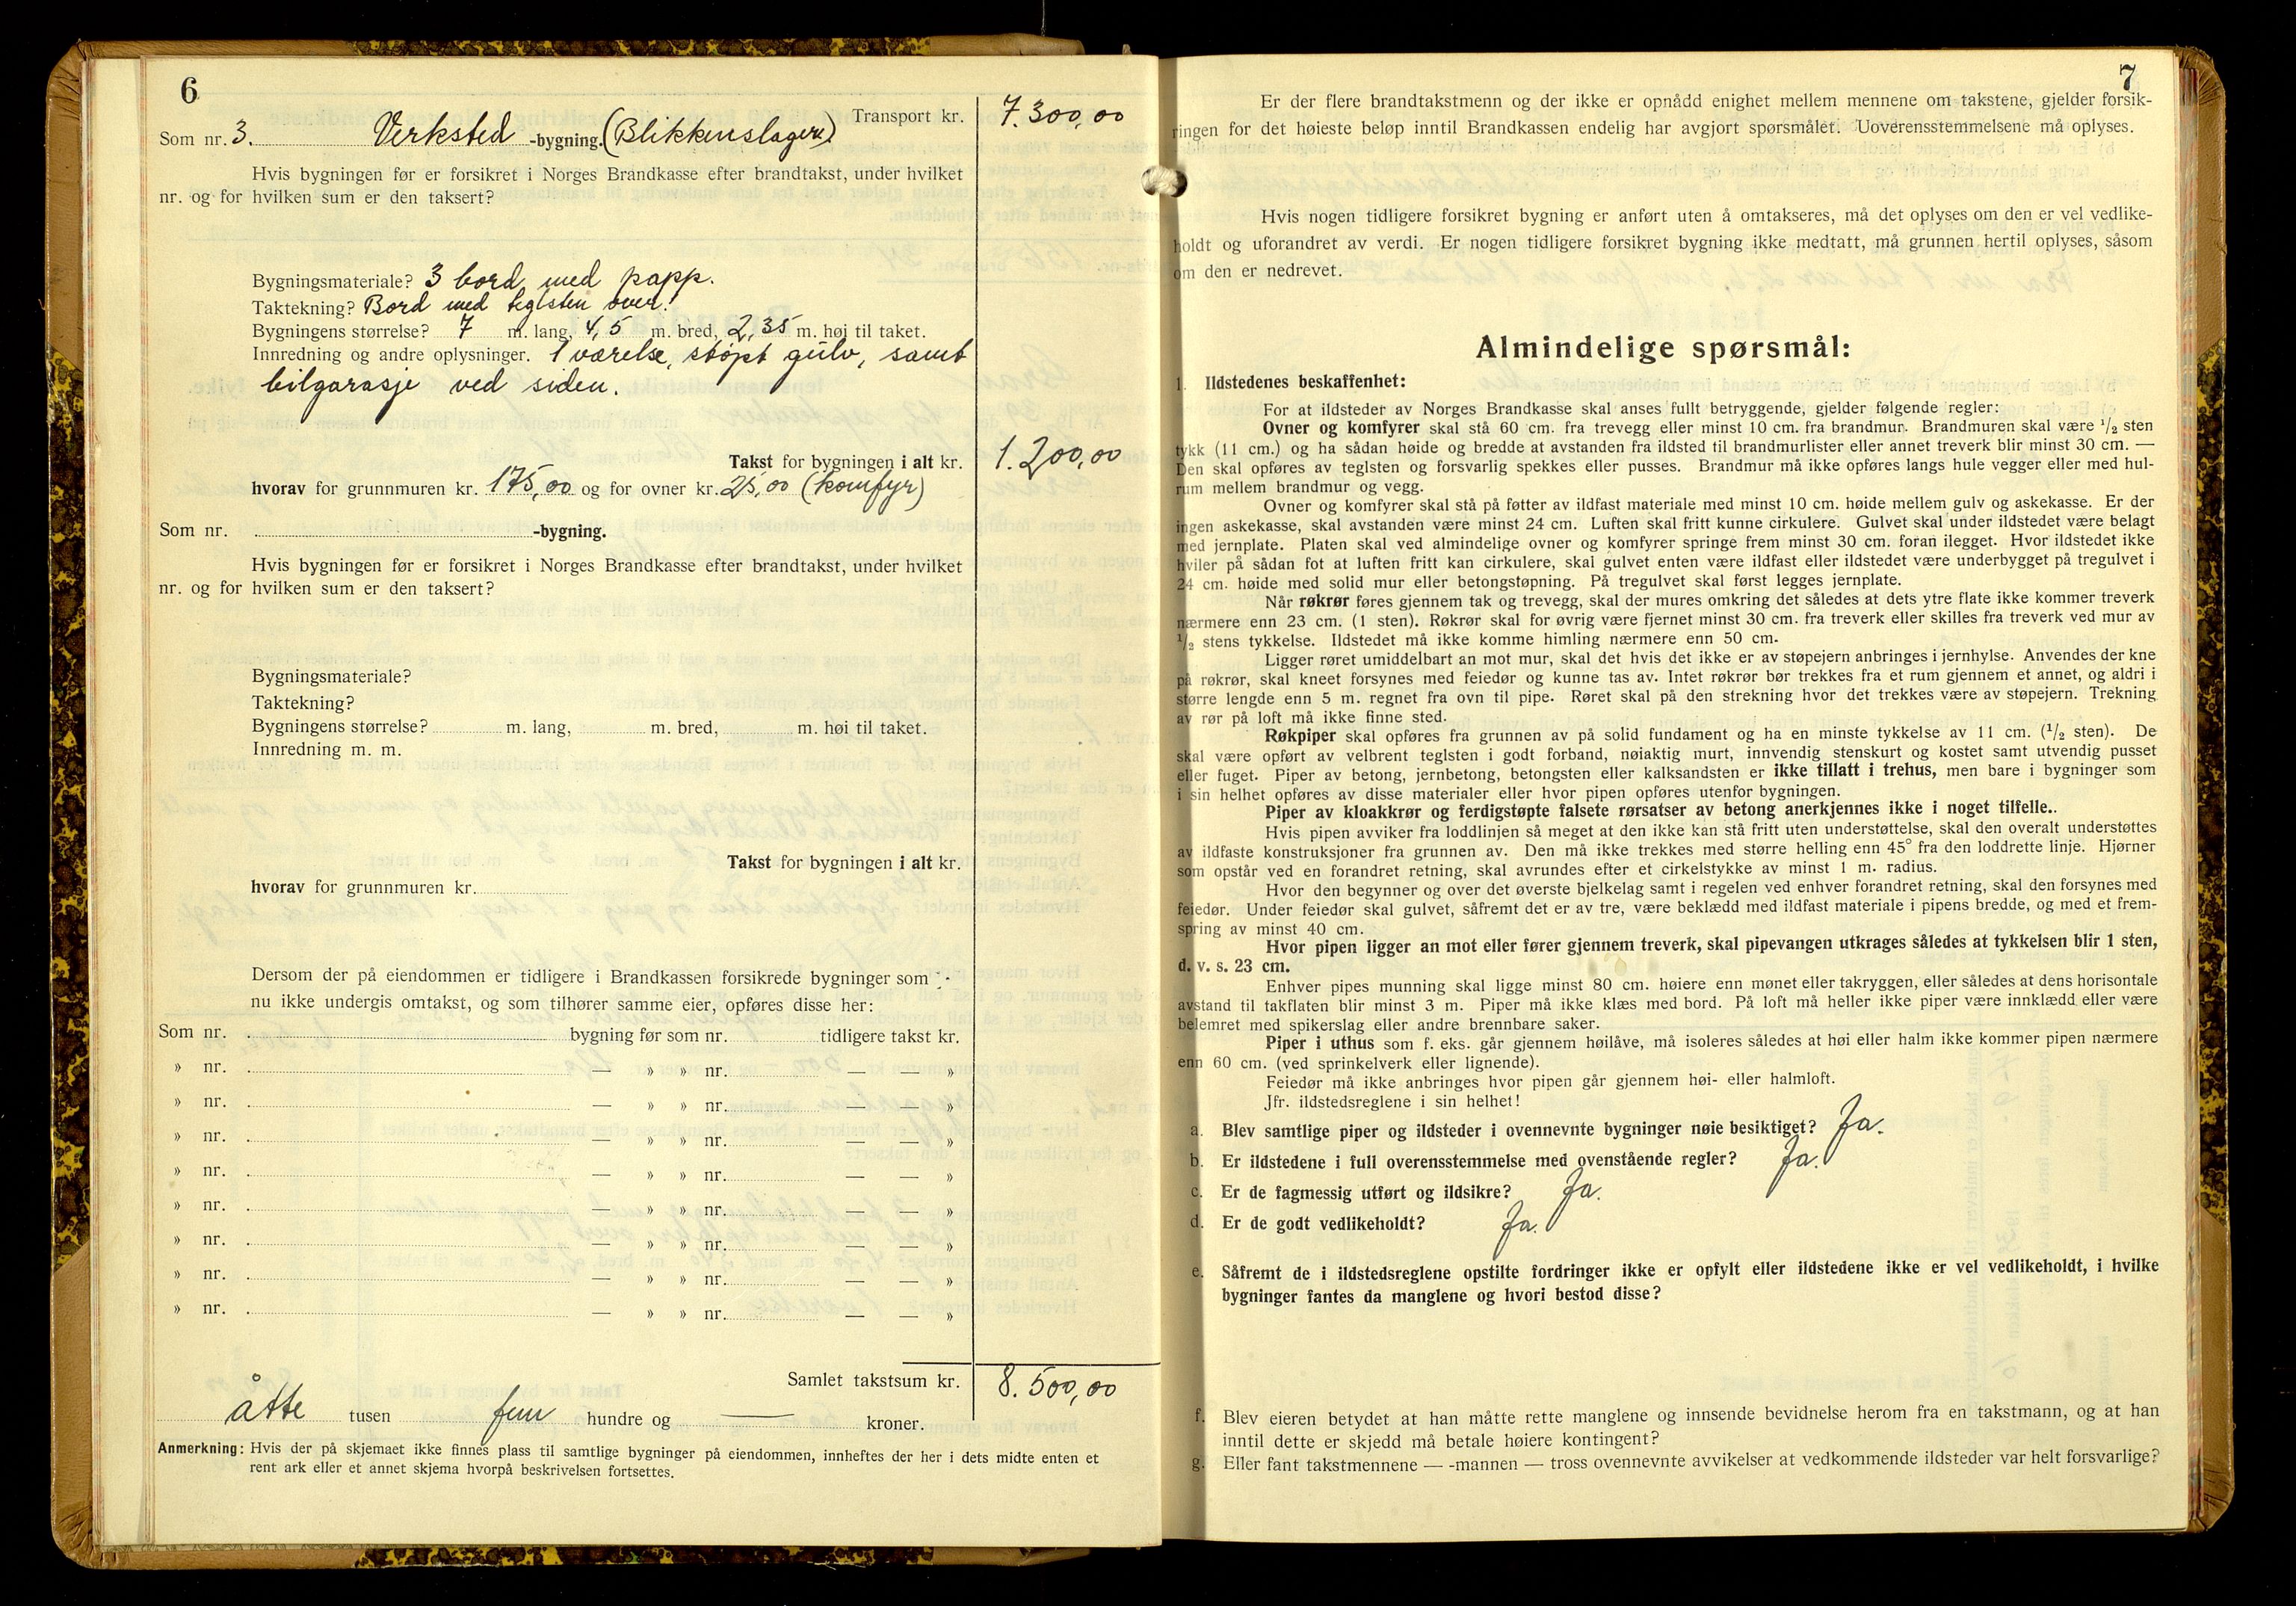 6
Transport kr. 7.300,00
Som nr. 3. Verksted -bygning. (Blikkenslageri)
Hvis bygningen før er forsikret i Norges Brandkasse efter brandtakst, under hvilket
nr. og for hvilken sum er den taksert?
Bygningsmateriale? 3 bord med papp.
Taktekning? Bord med teglsten over.
Bygningens størrelse? 7 m. lang, 4,5 m. bred, 2,35 m. høi til taket.
Innredning og andre oplysninger. 1 værelse, støpt gulv, samt
bilgarasje ved siden.
Takst for bygningen i alt kr. 1.200,00
hvorav for grunnmuren kr. 175,00 og for ovner kr. 25,00 (komfyr)
Som nr. -bygning.
Hvis bygningen før er forsikret i Norges Brandkasse efter brandtakst, under hvilket
nr. og for hvilken sum er den taksert?
Bygningsmateriale?
Taktekning?
Bygningens størrelse? m. lang, m. bred, m. høi til taket.
Innredning m. m.
Takst for bygningen i alt kr.
hvorav for grunnmuren kr.
Dersom der på eiendommen er tidligere i Brandkassen forsikrede bygninger som
nu ikke undergis omtakst, og som tilhører samme eier, opføres disse her:
Som nr. bygning før som nr. tidligere takst kr.
» nr. — » » nr. — — »
» nr. — » » nr. — — »
» nr. — » » nr. — — »
» nr. — » » nr. — — »
» nr. — » » nr. — — »
» nr. — » » nr. — — »
» nr. — » » nr. — — »
» nr. — » » nr. — — »
Samlet takstsum kr. 8.500,00
åtte tusen fem hundre og — kroner.
Anmerkning: Hvis der på skjemaet ikke finnes plass til samtlige bygninger på eiendommen, innheftes der her i dets midte enten et
rent ark eller et annet skjema hvorpå beskrivelsen fortsettes.
7
Er der flere brandtakstmenn og der ikke er opnådd enighet mellem mennene om takstene, gjelder forsik-
ringen for det høieste beløp inntil Brandkassen endelig har avgjort spørsmålet. Uoverensstemmelsene må oplyses.
Hvis nogen tidligere forsikret bygning er anført uten å omtakseres, må det oplyses om den er vel vedlike-
holdt og uforandret av verdi. Er nogen tidligere forsikret bygning ikke medtatt, må grunnen hertil oplyses, såsom
om den er nedrevet.
Almindelige spørsmål:
1. Ildstedenes beskaffenhet:
For at ildsteder av Norges Brandkasse skal anses fullt betryggende, gjelder følgende regler:
Ovner og komfyrer skal stå 60 cm. fra trevegg eller minst 10 cm. fra brandmur. Brandmuren skal være 1/2 sten
tykk (11 cm.) og ha sådan høide og bredde at avstanden fra ildsted til brandmurlister eller annet treverk blir minst 30 cm. —
Den skal opføres av teglsten og forsvarlig spekkes eller pusses. Brandmur må ikke opføres langs hule vegger eller med hul-
rum mellem brandmur og vegg.
Ovner og komfyrer skal stå på føtter av ildfast materiale med minst 10 cm. høide mellem gulv og askekasse. Er der
ingen askekasse, skal avstanden være minst 24 cm. Luften skal fritt kunne cirkulere. Gulvet skal under ildstedet være belagt
med jernplate. Platen skal ved almindelige ovner og komfyrer springe frem minst 30 cm. foran ilegget. Hvor ildstedet ikke
hviler på sådan fot at luften fritt kan cirkulere, skal gulvet enten være ildfast eller ildstedet være underbygget på tregulvet i
24 cm. høide med solid mur eller betongstøpning. På tregulvet skal først legges jernplate.
Når røkrør føres gjennem tak og trevegg, skal der mures omkring det således at dets ytre flate ikke kommer treverk
nærmere enn 23 cm. (1 sten). Røkrør skal for øvrig være fjernet minst 30 cm. fra treverk eller skilles fra treverk ved mur av
1/2 stens tykkelse. Ildstedet må ikke komme himling nærmere enn 50 cm.
Ligger røret umiddelbart an mot mur, skal det hvis det ikke er av støpejern anbringes i jernhylse. Anvendes der kne
på røkrør, skal kneet forsynes med feiedør og kunne tas av. Intet røkrør bør trekkes fra et rum gjennem et annet, og aldri i
større lengde enn 5 m. regnet fra ovn til pipe. Røret skal på den strekning hvor det trekkes være av støpejern. Trekning
av rør på loft må ikke finne sted.
Røkpiper skal opføres fra grunnen av på solid fundament og ha en minste tykkelse av 11 cm. (1/2 sten). De
skal være opført av velbrent teglsten i godt forband, nøiaktig murt, innvendig stenskurt og kostet samt utvendig pusset
eller fuget. Piper av betong, jernbetong, betongsten eller kalksandsten er ikke tillatt i trehus, men bare i bygninger som
i sin helhet opføres av disse materialer eller hvor pipen opføres utenfor bygningen.
Piper av kloakkrør og ferdigstøpte falsete rørsatser av betong anerkjennes ikke i noget tilfelle..
Hvis pipen avviker fra loddlinjen så meget at den ikke kan stå fritt uten understøttelse, skal den overalt understøttes
av ildfaste konstruksjoner fra grunnen av. Den må ikke trekkes med større helling enn 45° fra den loddrette linje. Hjørner
som opstår ved en forandret retning, skal avrundes efter et cirkelstykke av minst 1 m. radius.
Hvor den begynner og over det øverste bjelkelag samt i regelen ved enhver forandret retning, skal den forsynes med
feiedør. Under feiedør skal gulvet, såfremt det er av tre, være beklædd med ildfast materiale i pipens bredde, og med et frem-
spring av minst 40 cm.
Hvor pipen ligger an mot eller fører gjennem treverk, skal pipevangen utkrages således at tykkelsen blir 1 sten,
d. v. s. 23 cm.
Enhver pipes munning skal ligge minst 80 cm. høiere enn mønet eller takryggen, eller således at dens horisontale
avstand til takflaten blir minst 3 m. Piper må ikke klæs med bord. På loft må heller ikke piper være innklædd eller være
belemret med spikerslag eller andre brennbare saker.
Piper i uthus som f. eks. går gjennem høilåve, må isoleres således at høi eller halm ikke kommer pipen nærmere
enn 60 cm. (ved sprinkelverk eller lignende).
Feiedør må ikke anbringes hvor pipen går gjennem høi- eller halmloft.
Jfr. ildstedsreglene i sin helhet!
a. Blev samtlige piper og ildsteder i ovennevnte bygninger nøie besiktiget? Ja.
b. Er ildstedene i full overensstemmelse med ovenstående regler? Ja.
c. Er de fagmessig utført og ildsikre? Ja.
d. Er de godt vedlikeholdt? Ja.
e. Såfremt de i ildstedsreglene opstilte fordringer ikke er opfylt eller ildstedene ikke er vel vedlikeholdt, i hvilke
bygninger fantes da manglene og hvori bestod disse?
f. Blev eieren betydet at han måtte rette manglene og innsende bevidnelse herom fra en takstmann, og at han
inntil dette er skjedd må betale høiere kontingent?
g. Eller fant takstmennene — -mannen — tross ovennevnte avvikelser at vedkommende ildsteder var helt forsvarlige?